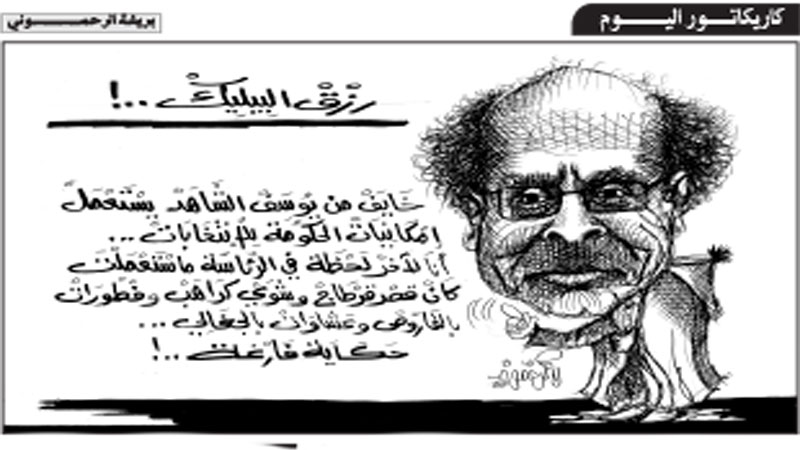 كاريكاتور اليوم
بريشة الرحموني
رزق البيليك ..!
خايف من يوسف الشاهد يستعمل
إمكانيات الحكومة للإنتخابات ...
أنا لآخر لحظة في الرئاسة ما ستعملت
كان قصر قرطاج وشوي كراهب وفطورات
بالقاروص وعشاوات بالجغالي ...
حكاية فارغة ..!